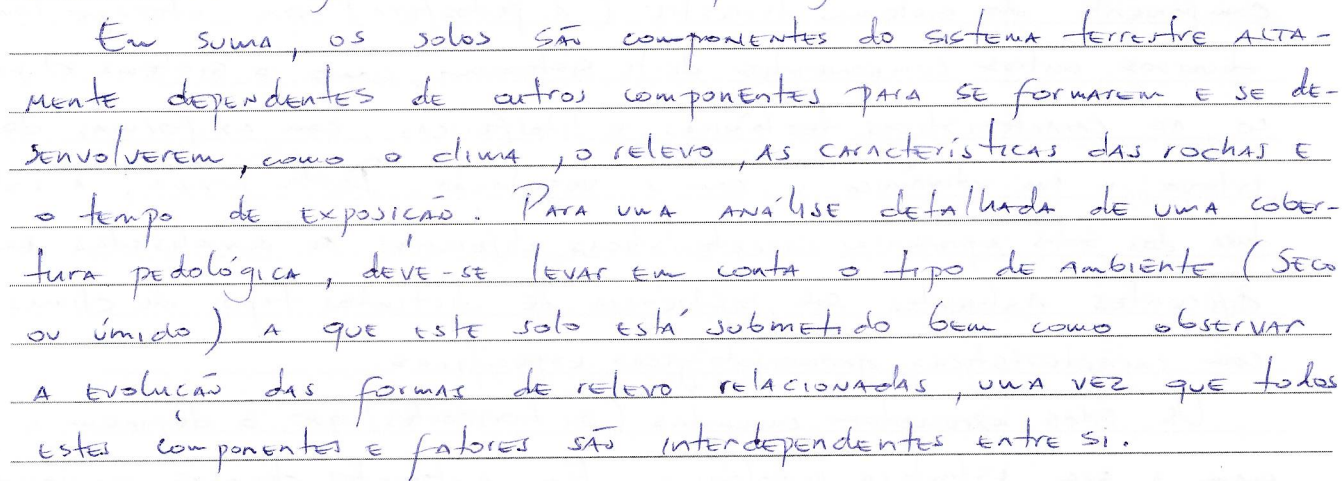 Em suma, os solos são componentes do sistema terrestre alta-
mente dependentes de outros componentes para se formarem e se de-
senvolverem, como o clima, o relevo, as características das rochas e
o tempo de exposição. Para uma análise detalhada de uma cober-
tura pedológica, deve-se levar em conta o tipo de ambiente (seco
ou úmido) a que este solo está submetido bem como observar
a evolução das formas de relevo relacionadas, uma vez que todos
estes componentes e fatores são interdependentes entre si.